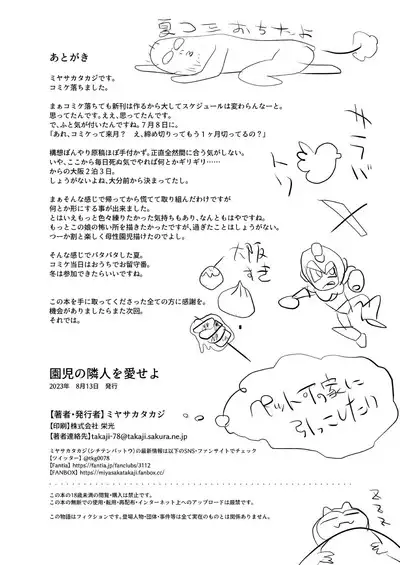 夏コミおちたよ
あとがき
ミヤサカタカジです。
コミケ落ちました。
まぁコミケ落ちても新刊は作るから大してスケジュールは変わらんなーと。
思ってたんです。ええ、思ってたんです。
で、ふと気が付いたんですね。7月8日に。
「あれ、コミケって来月？ え、締め切りってもう1ヶ月切ってるの？」
構想ぼんやり原稿ほぼ手付かず。正直全然間に合う気がしない。
いや、ここから毎日死ぬ気でやれば何とかギリギリ……
からの大阪2泊3日。
しょうがないよね、大分前から決まってたし。
まぁそんな感じで帰ってから慌てて取り組んだわけですが
何とか形にする事が出来ました。
とはいえもっと色々練りたかった気持ちもあり、なんともはやですね。
もっとこの娘の怖い所を描きたかったですが、過ぎたことはしょうがない。
つーか割と楽しく母性園児描けたのでよし。
そんな感じでバタバタした夏。
コミケ当日はおうちでお留守番。
冬は参加できたらいいですね。
この本を手に取ってくださった全ての方に感謝を。
機会がありましたらまた次回。
それでは。
トリ
大阪
すき
ペットOKの家に
引っこしたい
園児の隣人を愛せよ
2023年 8月13日 発行
【著者・発行者】ミヤサカタカジ
【印刷】株式会社 栄光
【著者連絡先】takaji-78@takaji.sakura.ne.jp
ミヤサカタカジ(シチテンバットウ)の最新情報は以下のSNS・ファンサイトでチェック
【ツイッター】@tkg0078
【Fantia】https://fantia.jp/fanclubs/3112
【FANBOX】https://miyasakatakaji.fanbox.cc/
この本の18歳未満の閲覧・購入は禁止です。
この本の無断での使用・転用・再配布・インターネット上へのアップロードは厳禁です。
この物語はフィクションです。登場人物・団体・事件等は全て実在のものとは関係ありません。
ZZZ